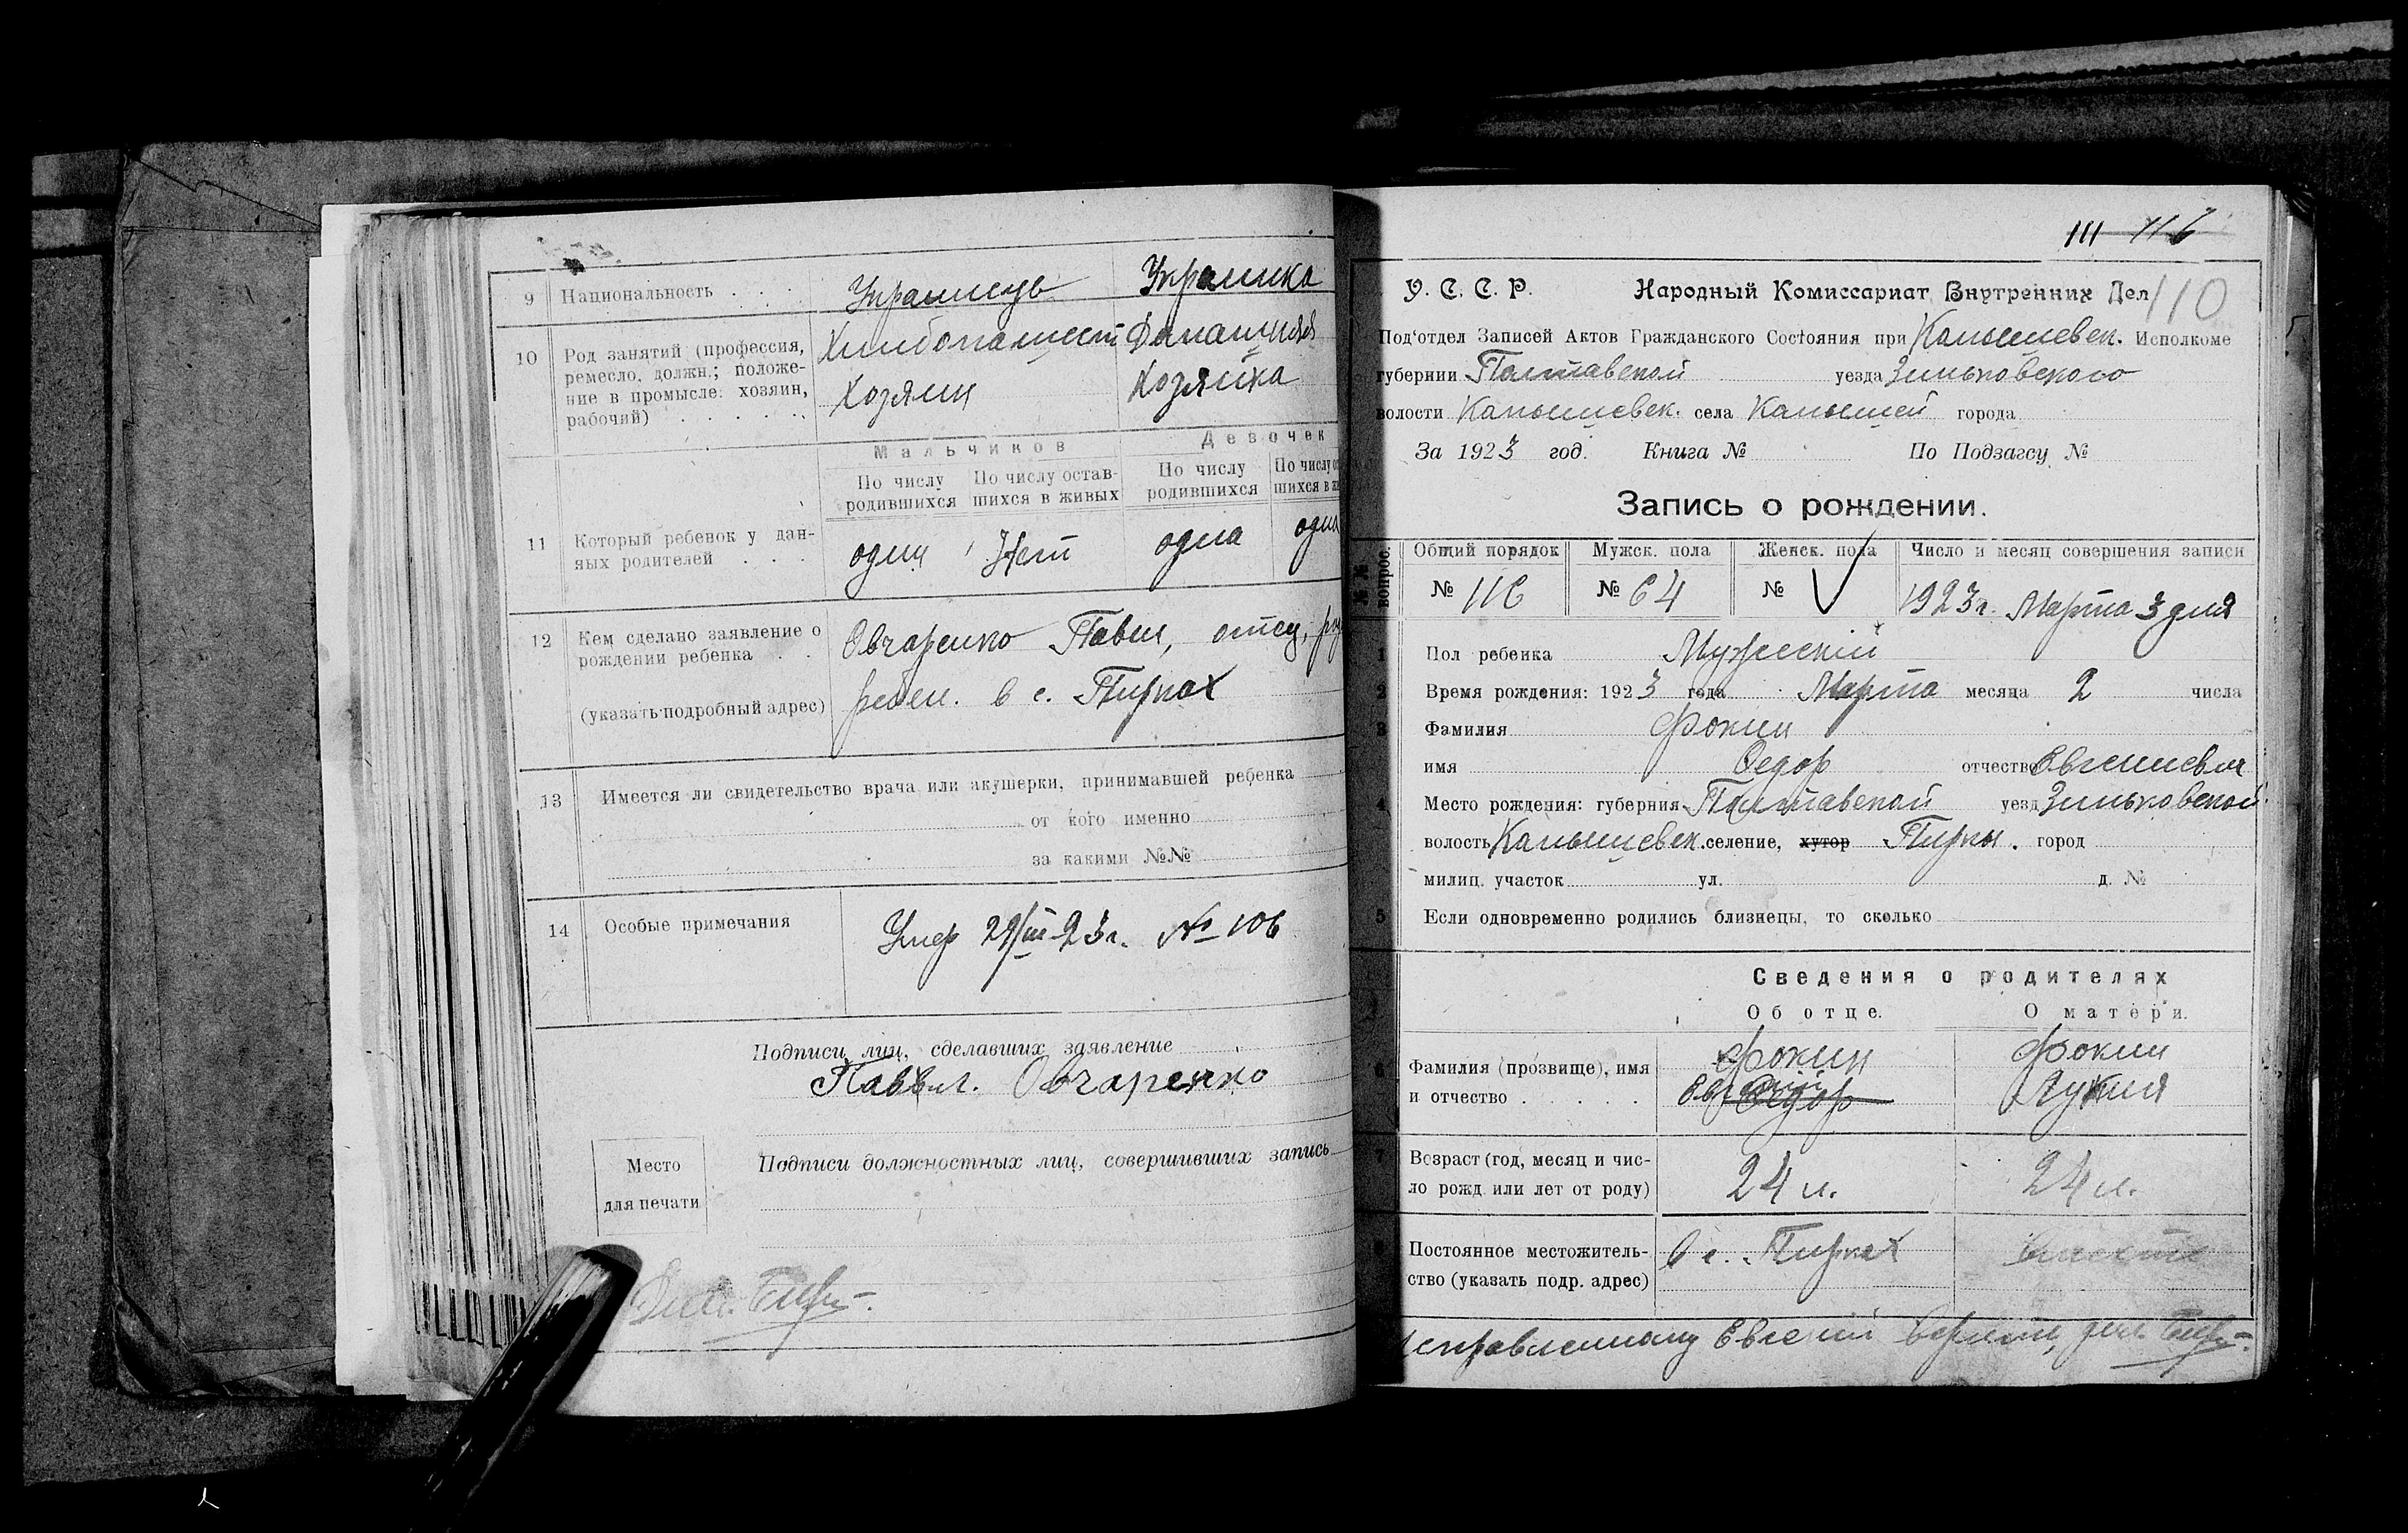 9 Национальность . . . Украинець Украинка
10 Род занятий (профессия, ремесло, должн.; положе-
ние в промысле: хозяин,
рабочий) . . . .
Хлибопашест Домашняя
Хозяин Хозяйка
Мальчиков Девочек
По числу родившихся По числу остав-
шихся в живых По числу родившихся
11 Который ребенок у дан-
ных родителей . . .
один Нет одна одна
12 Кем сделано заявление о
рождении ребенка . .
(указать подробный адрес)
Овчаренко Павел, отец,
ребен. в с. Пирках
13 Имеется ли свидетельство врача или акушерки, принимавшей ребенка
от кого именно
за какими №№
14 Особые примечания
Умер 29/III-23г. № 106
Подписи лиц, сделавших заявление
Павел. Овчаренко
Место
для печати
Подписи должностных лиц, совершивших запись
111 116
У. С. С. Р. Народный Комиссариат Внутренних Дел 110
Под‘отдел Записей Актов Гражданского Состояния при Исполкоме
губернии Полтавской уезда Зиньковского
волости села города
За 1923 год. Книга № По Подзагсу №
Запись о рождении.
№№ вопрос. Общий порядок Мужск. пола Женск. пола Число и месяц совершения записи
№ 116 № 64 № 1923г. Марта 3 дня
1 Пол ребенка Мужескій
2 Время рождения: 1923 года Марта месяца 2 числа
3 Фамилия Фокин
имя Федор отчество Евгениевич
4 Место рождения: губерния Полтавской уезд Зиньковской
волость селение, хутор Пирки. город
милиц. участок ул. д. №
5 Если одновременно родились близнецы, то сколько
Сведения о родителях
Об отце. О матери.
6 Фамилия (прозвище), имя
и отчество . . . . .
Фокин Фокин
Евгений Федор Лукия
7 Возраст (год, месяц и чис-
ло рожд или лет от роду)
24 л. 24 л.
8 Постоянное местожитель-
ство (указать подр. адрес)
В с. Пирках
Исправленному Евгений верить,